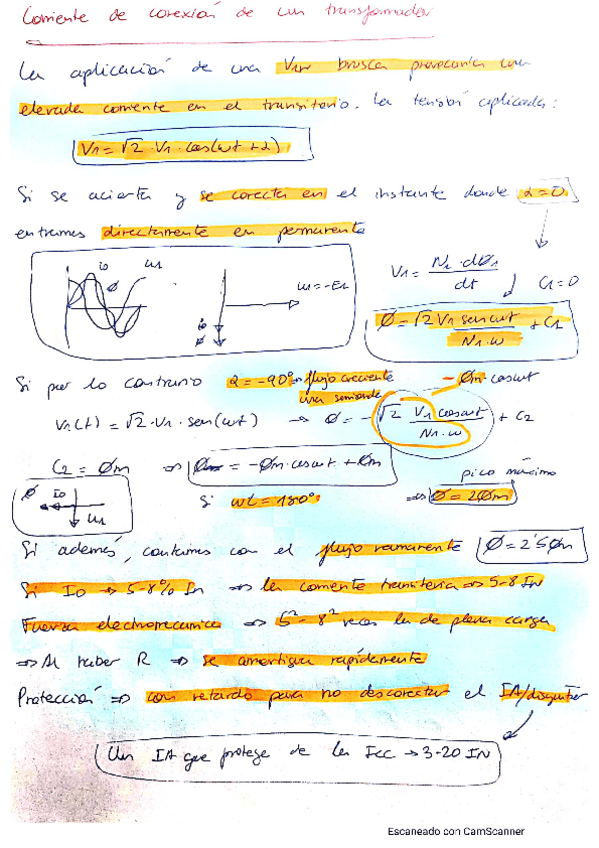 Corriente de conexión de un transformador
La aplicación de una Vn brusca provocaría una
elevada corriente en el transitorio. La tensión aplicada:
V1 = √2 · V1 · cos(wt + α)
Si se acierta y se conecta en el instante donde α = 0,
entramos directamente en permanente
io
ø
u1
u1 = -E1
io
ø
V1 = N1 · dø1 / dt
C1 = 0
ø = √2 V1 sen wt / N1 · w + C1
Si por lo contrario α = -90° ⇒ flujo creciente una semionda
- øm · cos wt
V1(t) = √2 · V1 · sen(wt) → ø = - √2 V1 cos wt / N1 · w + C2
C2 = øm ⇒ ø = -øm · cos wt + øm
pico máximo
Si wt = 180° ⇒ ø = 2øm
ø Io
u1
Si además, contamos con el flujo remanente ø = 2'5øm
Si Io → 5-8% In ⇒ la corriente transitoria ⇒ 5-8 In
Fuerza electromecánica ⇒ 5² - 8² veces la de plena carga
⇒ Al haber R ⇒ se amortigua rápidamente
Protección ⇒ con retardo para no desconectar el IA/disyuntor
Un IA que protege de la Icc → 3-20 IN
Escaneado con CamScanner